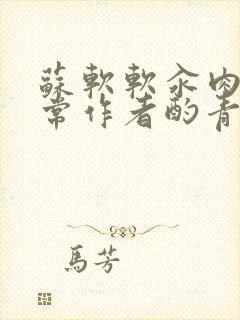 蘇軟軟汆肉
常作者酌青
馬芳